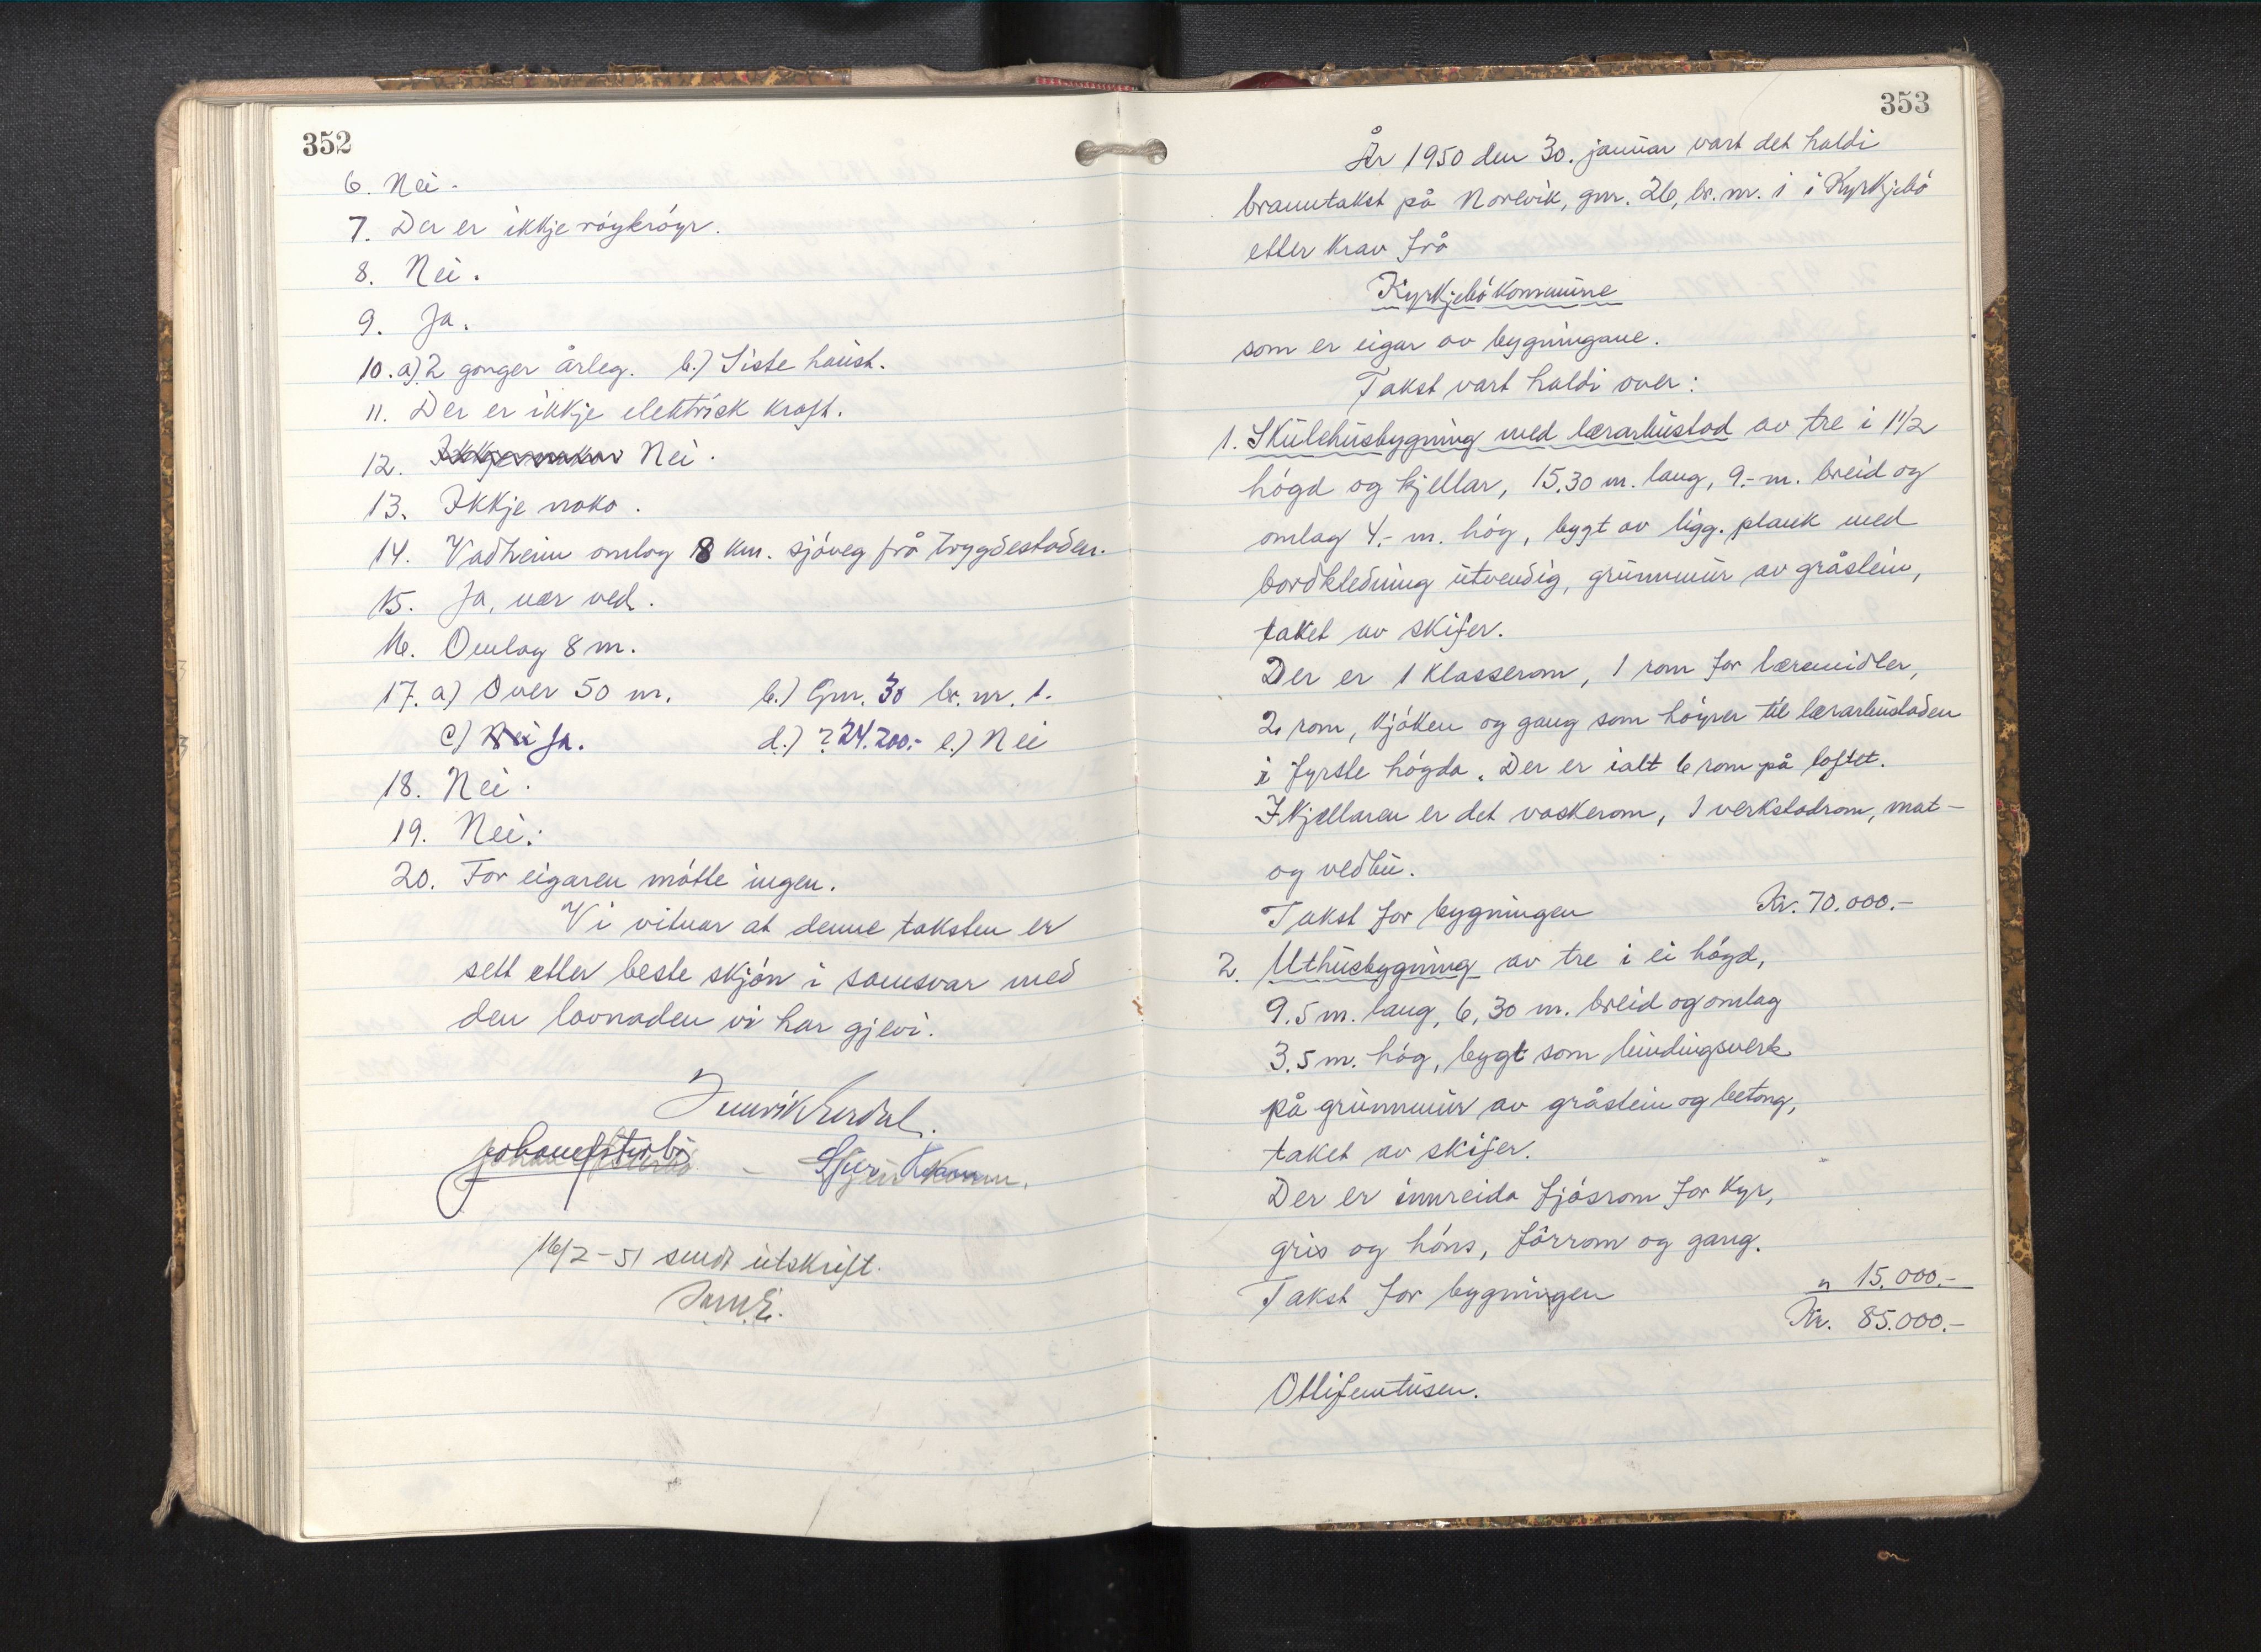 352
6. Nei.
7. Der er ikkje röykröyr.
8. Nei.
9. Ja.
10. a) 2 gonger årleg. b.) Siste haust.
11. Der er ikkje elektrisk kraft.
12. Ikkje noko Nei.
13. Ikkje noko.
14. Vadheim omlag 18 km. sjöveg frå trygdestaden.
15. Ja, nær ved.
16. Omlag 8 m.
17. a) Over 50 m. b.) Gnr. 30 br. nr. 1.
c) Nei Ja. d.) ? 24.200.- e.) Nei
18. Nei.
19. Nei.
20. For eigaren mötte ingen.
Vi vitnar at denne taksten er
sett etter beste skjön i samsvar med
den lovnaden vi har gjevi.
16/2-51 sendt utskrift.
353
År 1950 den 30. januar vart det haldi
branntakst på Norevik, gnr. 26, br. nr. 1 i Kyrkjebö
etter krav frå
Kyrkjebö kommune
som er eigar av bygningane.
Takst vart haldi over:
1. Skulehusbygning med lærarbustad av tre i 1 1/2
högd og kjellar, 15.30 m. lang, 9.- m. breid og
omlag 4.- m. hög, bygt av ligg. plank med
bordkledning utvendig, grunnmur av gråstein,
taket av skifer.
Der er 1 klasserom, 1 rom for læremidler,
2 rom, kjöken og gang som höyrer til lærarbustaden
i fyrste högda. Der er ialt 6 rom på loftet.
I kjellaren er det vaskerom, 1 verkstadrom, mat-
og vedbu.
Takst for bygningen Kr. 70.000.-
2. Uthusbygning av tre i ei högd,
9.5 m. lang, 6,30 m. breid og omlag
3.5 m. hög, bygt som bindingsverk
på grunnmur av gråstein og betong,
taket av skifer.
Der er innreida fjösrom for kyr,
gris og höns, fôrrom og gang.
Takst for bygningen " 15.000.-
Kr. 85.000.-
Ottifemtusen.